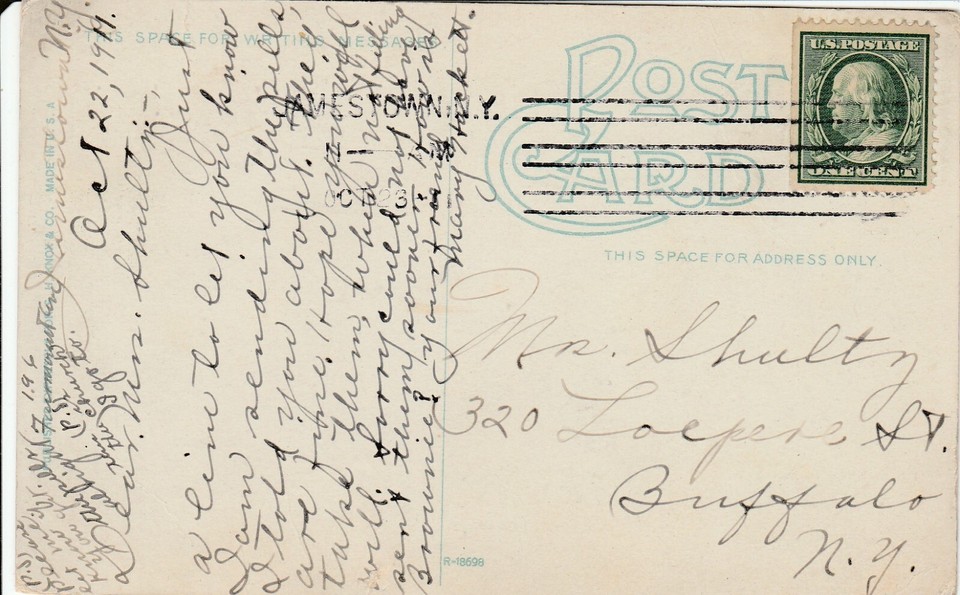 THIS SPACE FOR WRITING MESSAGES
POST
CARD
U.S. POSTAGE
ONE CENT
JAMESTOWN N.Y.
OCT 23
THIS SPACE FOR ADDRESS ONLY.
Mr. Shultz
320 St.
Buffalo
N.Y.
R-18698
KNOX & CO. MADE IN U.S.A
Jamestown N.Y.
Oct 22, 1911.
Dear Mr. Shultz,
Just
a line to let you know
I am sending the pills
I told you about. They
are fine. I hope you will
take them, when
will. Sorry could not have
sent them sooner. How is
Brownie? your friend
Mary Hackett.
P.S.
let me
know